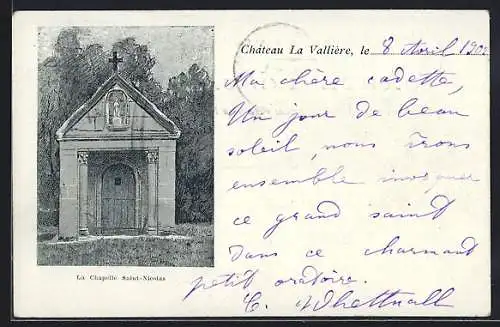 Château La Vallière, le 8 Avril 190
Ma chère cadette,
Un jour de beau
soleil, nous irons
ensemble invoquer
ce grand saint
dans ce charmant
petit oratoire.
La Chapelle Saint-Nicolas
C.